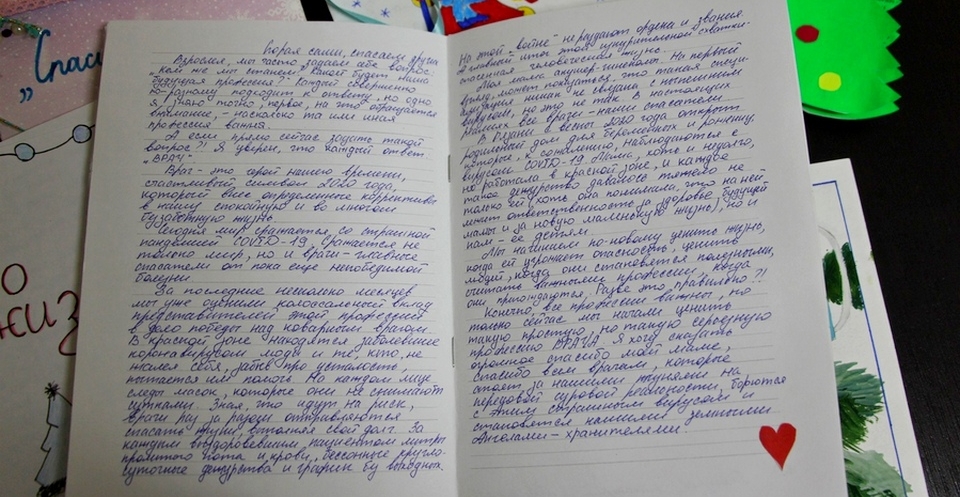 „Спаси
О
порая сами, спасаем других
Взрослея, мы часто задаем себе вопрос,
„Кем же мы станем? Какой будет наша
будущая профессия?" Каждый совершенно
по-разному подходит к ответу, но одно
я знаю точно, первое, на что обращается
внимание, - насколько та или иная
профессия важна.
А если прямо сейчас задать такой
вопрос?! Я уверен, что каждый ответит
„ВРАЧ".
Врач - это герой нашего времени,
счастливый символ 2020 года,
который внес определенные коррективы
в нашу спокойную и во многом
беззаботную жизнь.
Сегодня мир сражается со страшной
пандемией COVID-19, сражается не
только мир, но и врачи - главные
спасатели от пока еще непобедимой
болезни.
За последние несколько месяцев
мы уже оценили колоссальный вклад
представителей этой профессии
в дело победы над коварным врагом.
В красной зоне находятся заболевшие
коронавирусом люди и те, кто, не
жалея себя, забыв про усталость,
пытается им помочь. На каждом лице
следы масок, которые они не снимают
сутками. Зная, что идут на риск,
врачи раз за разом отправляются
спасать жизни, выполняя свой долг. За
каждым выздоровевшим пациентом литры
пролитого пота и крови, бессонные кругло-
суточные дежурства и график без выходных.
На этой „войне" не раздают ордена и звания.
А главный итог этой изнурительной схватки-
спасенная человеческая жизнь.
Моя мама акушер-гинеколог. На первый
взгляд, может показаться, что такая специ-
альность никак не связана с нынешним
вирусом, но это не так. В настоящих
реалиях все врачи - наши спасатели.
В Рязани с весны 2020 года открыт
родильный дом для беременных и рожениц,
которые, к сожалению, наблюдаются с
вирусом COVID-19. Мама, хоть и недолго,
но работала в красной зоне, и каждое
такое дежурство давалось тяжело не
только ей (хоть она понимала, что на ней
лежит ответственность за здоровье будущей
мамы и за новую маленькую жизнь), но и
нам - ее детям.
Мы начинаем по-новому ценить жизнь,
когда ей угрожает опасность, ценить
людей, когда они становятся полезными,
считать важными профессии, когда
они пригождаются. Разве это правильно?!!
Конечно все профессии важны, но
только сейчас мы начали ценить
такую простую, но такую серьезную
профессию ВРАЧА. Я хочу сказать
огромное спасибо моей маме,
спасибо всем врачам, которые
стоят за нашими жизнями на
передовой суровой реальности, борются
с этим страшным вирусом и
становятся нашими земными
Ангелами-хранителями